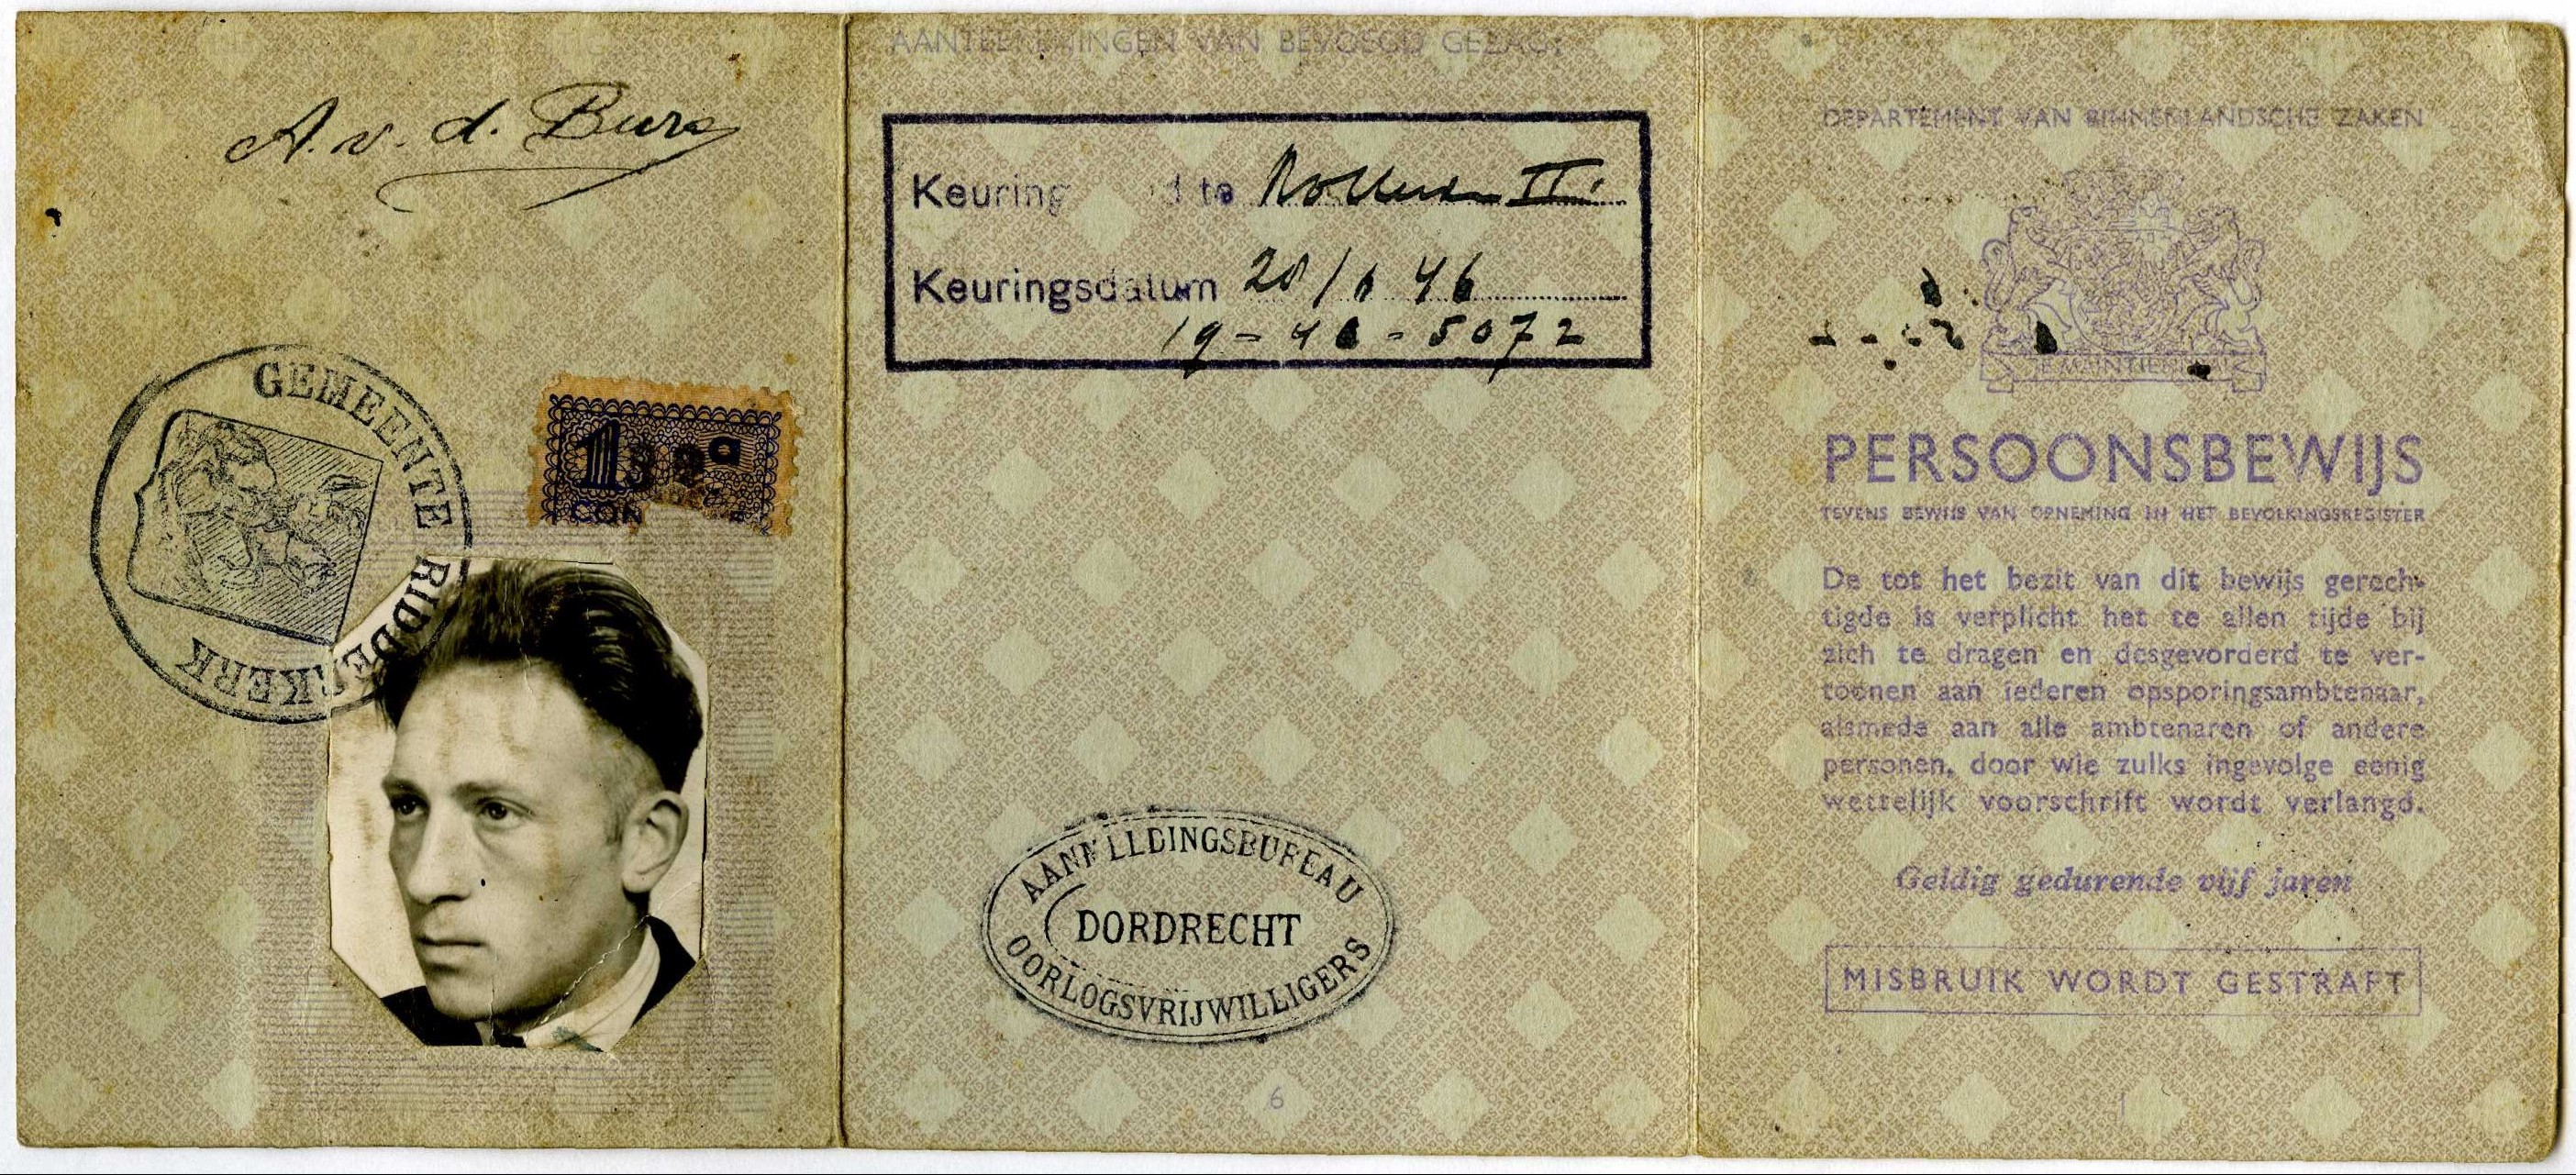 A. v. d. Burg
GEMEENTE RIDDERKERK
1
CON
AANTEEKENINGEN VAN BEVOEGD GEZAG:
Keuring d te II
Keuringsdatum 28/6 46
19 - 46 - 5072
AANMELDINGSBUREAU
DORDRECHT
OORLOGSVRIJWILLIGERS
6
DEPARTEMENT VAN BINNENLANDSCHE ZAKEN
JE MAINTIENDRAI
PERSOONSBEWIJS
TEVENS BEWIJS VAN OPNEMING IN HET BEVOLKINGSREGISTER
De tot het bezit van dit bewijs gerech-
tigde is verplicht het te allen tijde bij
zich te dragen en desgevorderd te ver-
toonen aan iederen opsporingsambtenaar,
alsmede aan alle ambtenaren of andere
personen, door wie zulks ingevolge eenig
wettelijk voorschrift wordt verlangd.
Geldig gedurende vijf jaren
MISBRUIK WORDT GESTRAFT
1